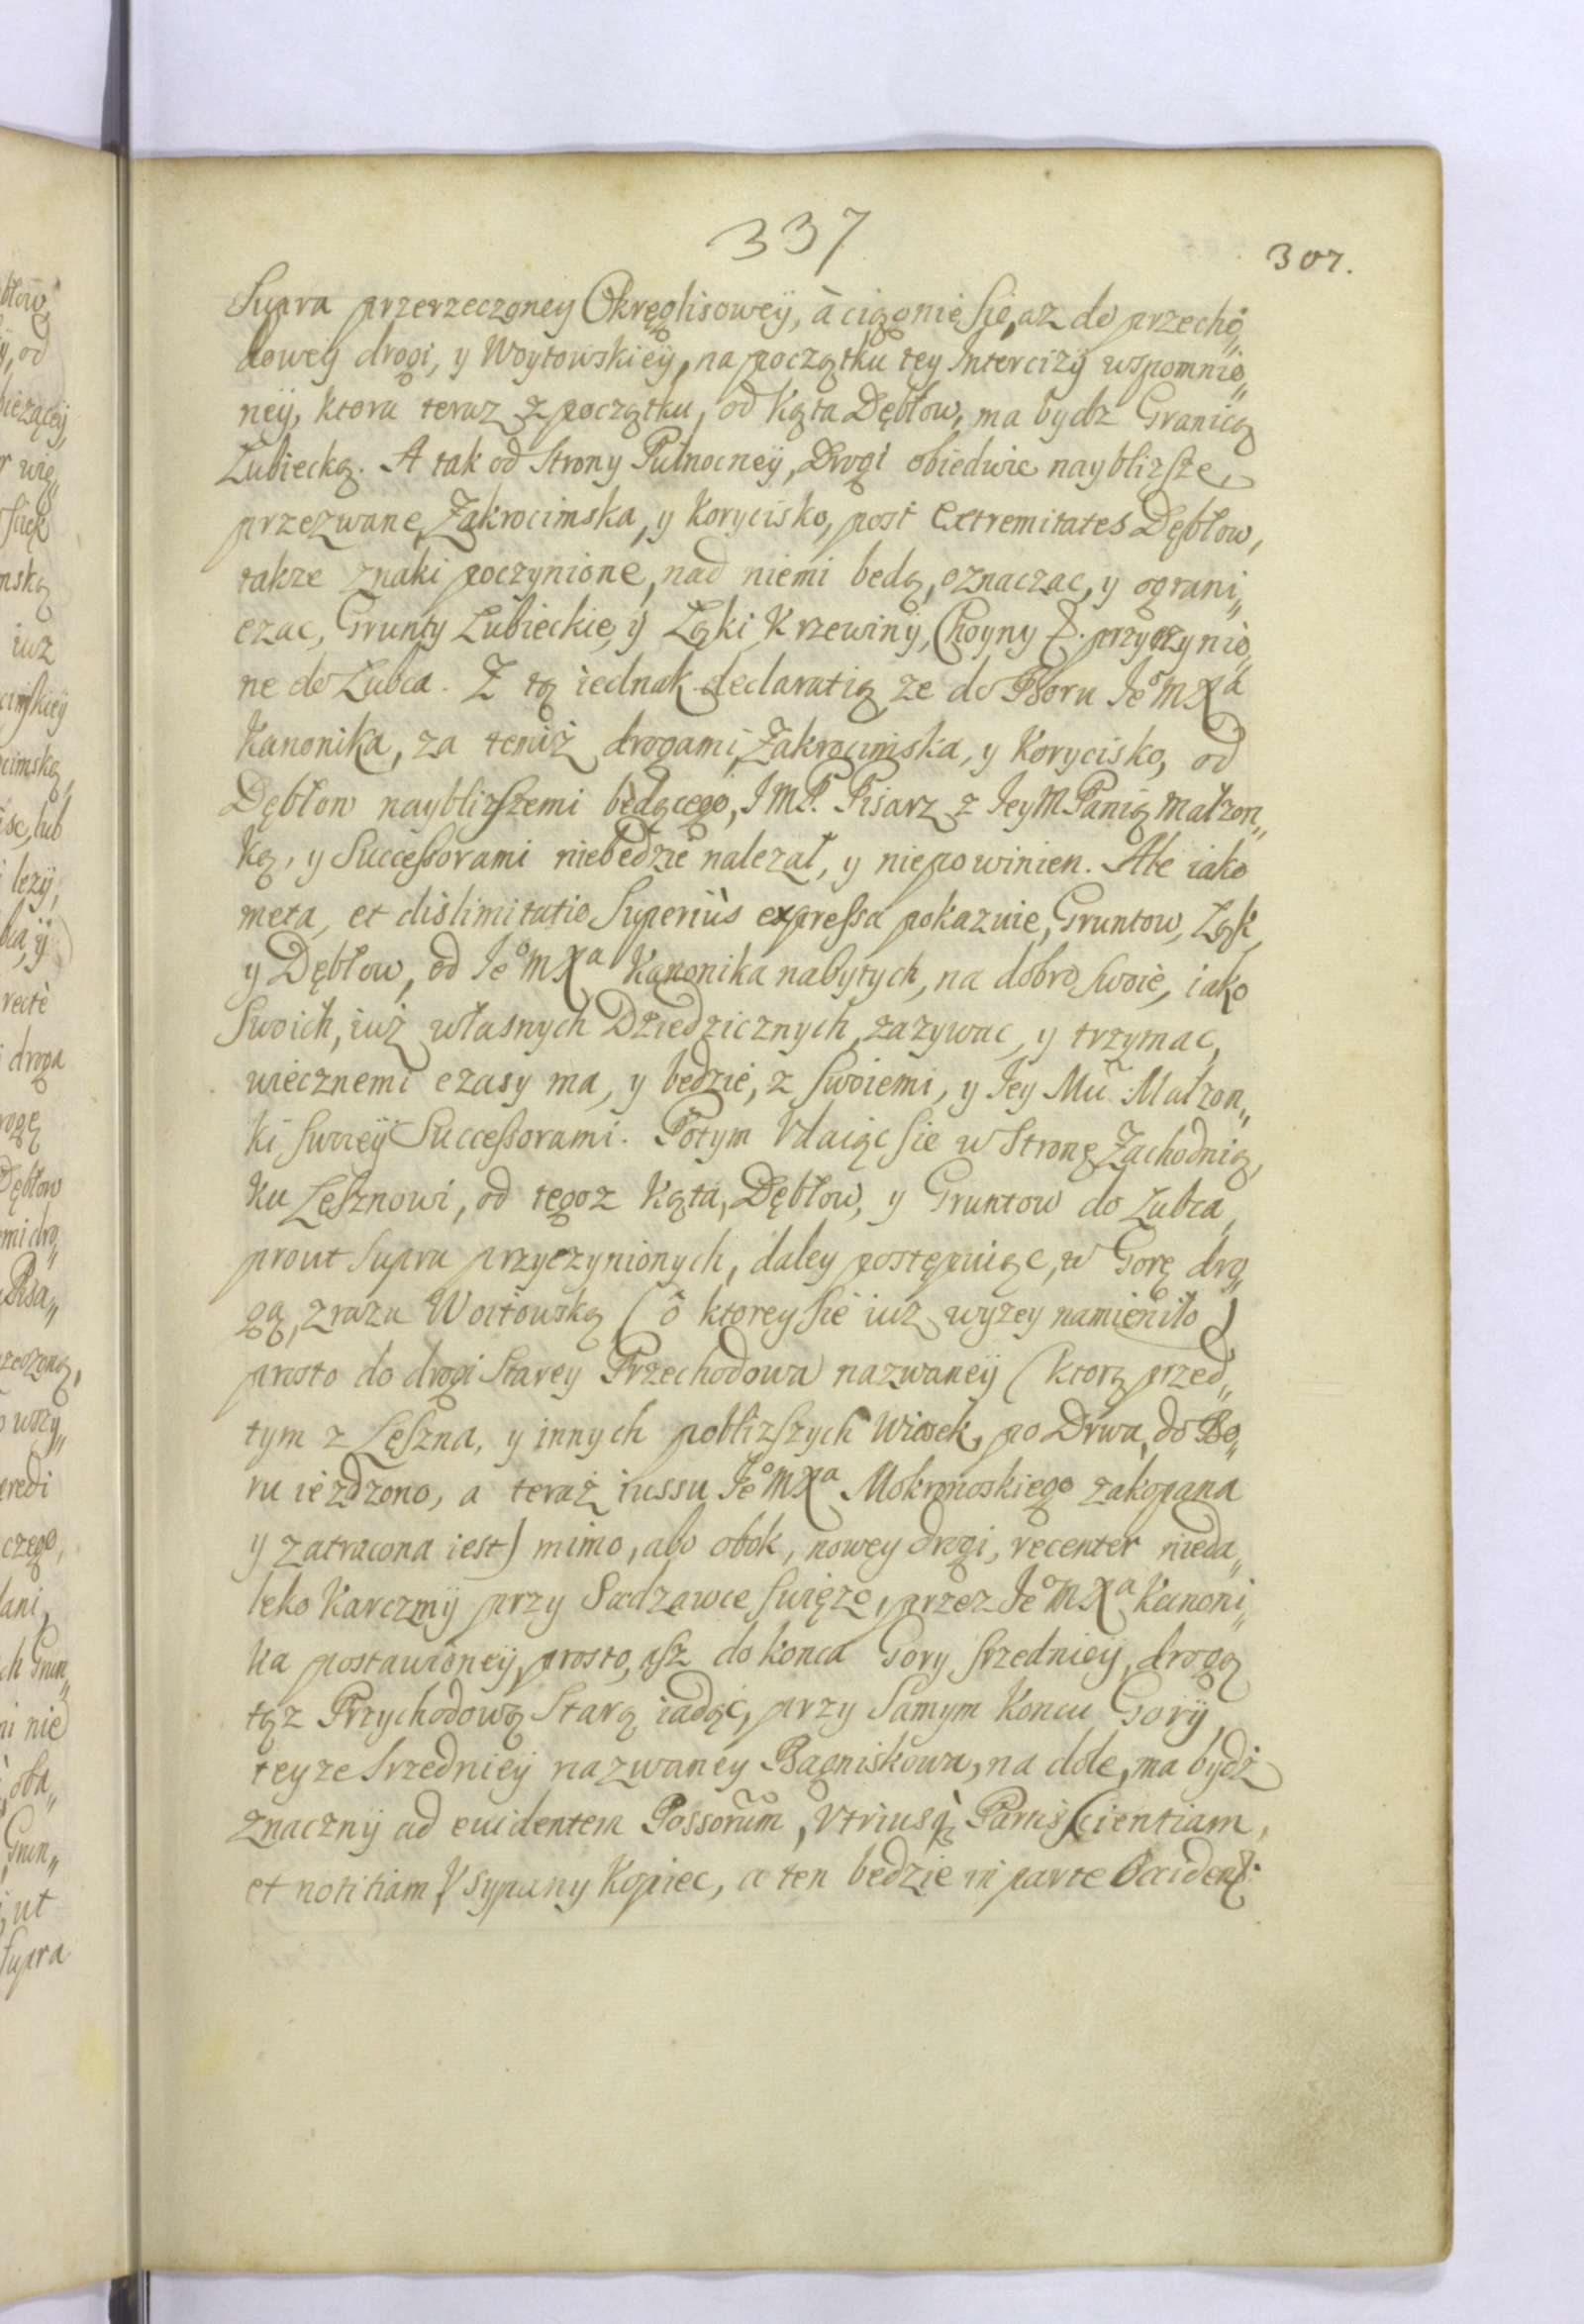 337
307.
Supra przerzeczoney Okręglisowey, à ciągnie się, az do przecho„
dowey drogi, y Woytowskiey, na początku tey Intercizÿ wspomnio„
neÿ, ktora teraz z początku, od Kąta Dębłow, ma bydz Granicą
Lubiecką. A tak od Strony Pułnocneÿ, Drogi obiedwie naybliższe,
przezwane, Zakrocimska, y Korycisko, post extremitates Dębłow,
takze znaki poczynione, nad niemi bedą, oznaczac, y ograni„
czac, Grunty Lubieckie, ÿ Łąki Krzewinÿ, Choyny &. przyczynio„
ne do Lubca. Z tą iednak declaratią ze do Boru Jeo MXa
Kanonika, za temiż drogami, Zakrocimska, y Korycisko, od
Dębłow naybliższemi będącego, J M P. Pisarz z Jey M Panią małzon„
ką, y Successorami niebedzie nalezał, y niepowinien. Ale iako
meta, et dislimitatio Superiùs expressa pokazuie, Gruntow, Łąk,
y Dębłow, od Jeo MXa Kanonika nabytych, na dobro swoie, iako
Swoich, iuż własnych Dziedzicznych, zazywac, y trzymac,
wiecznemi czasy ma, y bedzie, z swoiemi, y Jey Mci Małzon„
ki swoieÿ Successorami. Potym Udaiąc sie w Stronę Zachodnią,
ku Lesznowi, od tegoz Kąta, Dębłow, y Gruntow do Lubca,
prout supra przyczynionych, daley postępuiąc, w Gorę dro„
gą, zrazu Woitowską (ô ktorey sie iuz wyzey namieniło)
prosto do drogi Starey Przechodowa nazwaneÿ (ktorą przed„
tym z Lęszna, y innych pobliższych Wiosek, po Drwa, do Bo„
ru ieżdzono, a teraż iussu Jeo MXa Mokronoskiego zakopana
y zatracona iest) mimo, abo obok, nowey drogi, recenter nieda„
leko Karczmÿ przy Sadzawce swięzo, przez Jeo MXa Kanoni„
ka postawioneÿ, prosto, asz do konca Gory srzednieÿ, drogą
tąz Przychodową Starą iadąc, przy samym Koncu Gorÿ,
teyze srzednieÿ nazwaney Bagniskowa, na dole, ma bydż
znacznÿ ad euidentem Possorum, Vtriusq; Partis scientiam,
et notitiam Vsypany Kopiec, a ten bedzie in parte Occident: